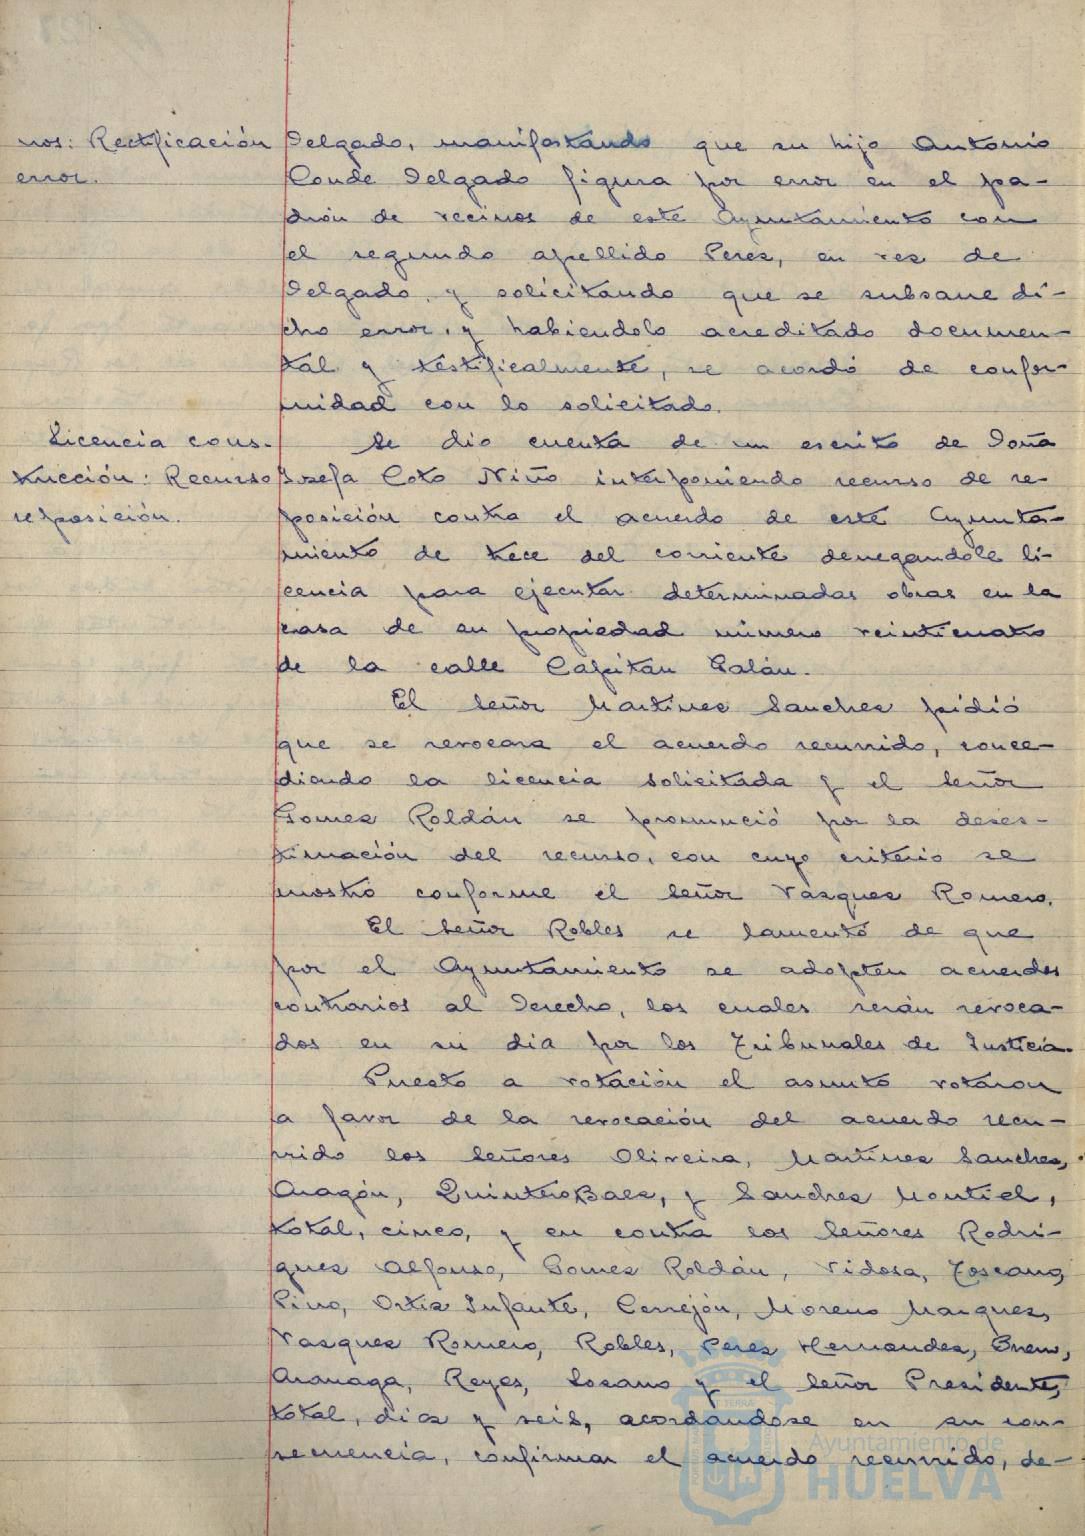 nos: Rectificación
error.
Delgado, manifestando que su hijo Antonio
Conde Delgado figura por error en el pa-
drón de vecinos de este Ayuntamiento con
el segundo apellido Perez, en vez de
Delgado, y solicitando que se subsane di-
cho error, y habiendolo acreditado documen-
tal y testificalmente, se acordó de confor-
midad con lo solicitado.
Licencia cons-
trucción: Recurso
reposición.
Se dio cuenta de un escrito de Doña
Josefa Coto Niño interponiendo recurso de re-
posición contra el acuerdo de este Ayunta-
miento de trece del corriente denegandole li-
cencia para ejecutar determinadas obras en la
casa de su propiedad número veinticuatro
de la calle Capitán Galán.
El Señor Martinez Sanchez pidió
que se revocara el acuerdo recurrido, conce-
diendo la licencia solicitada y el Señor
Gomez Roldán se pronunció por la deses-
timación del recurso, con cuyo criterio se
mostró conforme el Señor Vazquez Romero.
El Señor Robles se lamentó de que
por el Ayuntamiento se adopten acuerdos
contrarios al Derecho, los cuales serán revoca-
dos en su dia por los Tribunales de Justicia.
Puesto a votación el asunto votaron
a favor de la revocación del acuerdo recu-
rrido los Señores Oliveira, Martinez Sanchez,
Aragón, Quintero Baez, y Sanchez Montiel,
total, cinco, y en contra los Señores Rodri-
guez Alfonso, Gomez Roldán, Vidosa, Toscano,
Pino, Ortiz Infante, Cerrejón, Moreno Marquez,
Vazquez Romero, Robles, Perez Hernandez, Bueno,
Aranaga, Reyes, Lozano y el Señor Presidente,
total, diez y seis, acordandose en su con-
secuencia, confirmar el acuerdo recurrido, de-
Ayuntamiento de
HUELVA